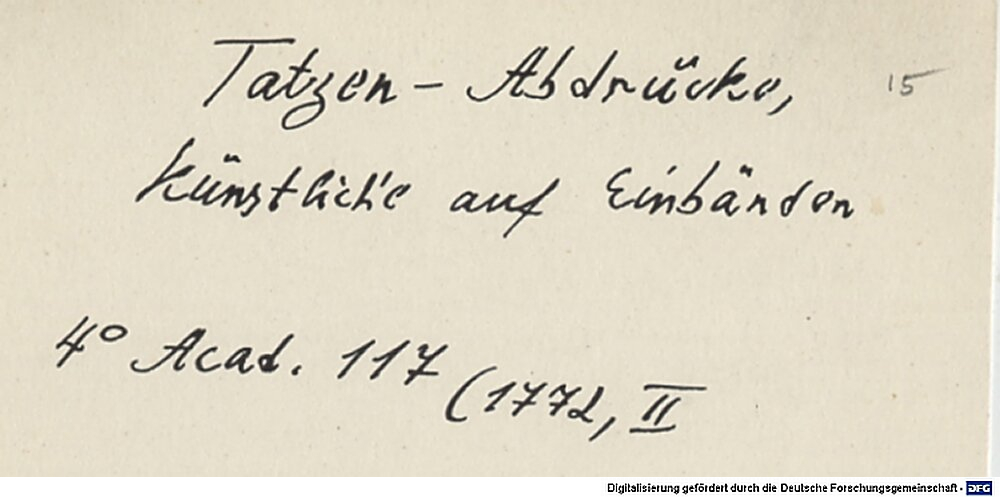 Tatzen - Abdrücke, 15
künstliche auf Einbänden
4° Acad. 117 (1772, II
Digitalisierung gefördert durch die Deutsche Forschungsgemeinschaft - DFG